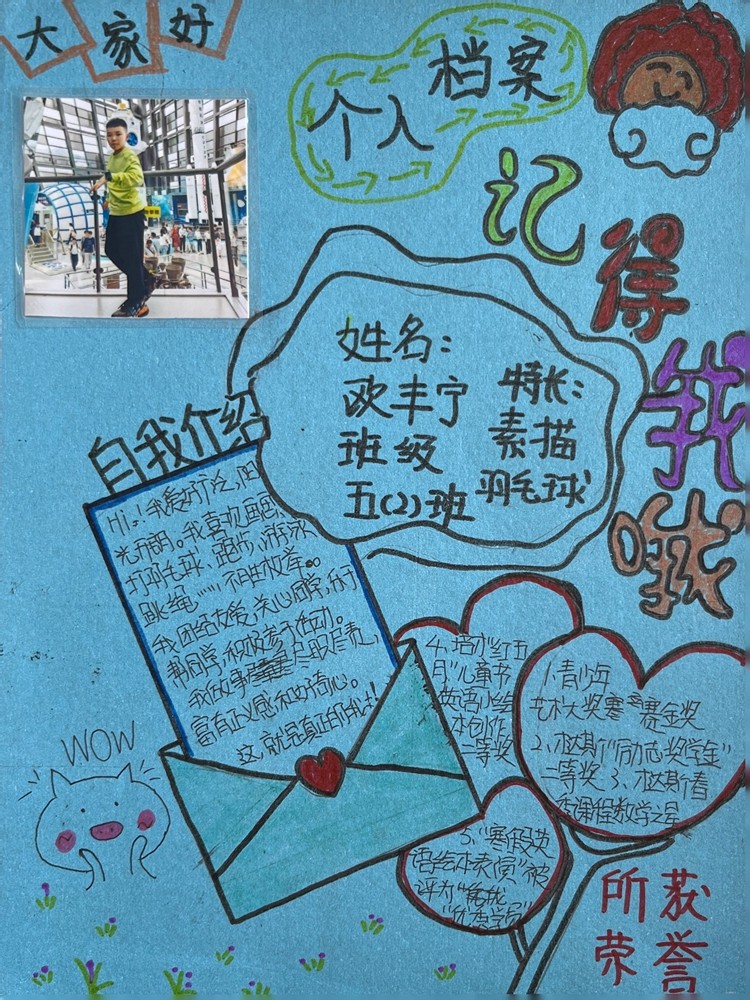 大家好
个人档案
记得我哦
姓名：
欧丰宁
班级
五(2)班
特长：
素描
羽毛球
自我介绍
Hi！我爱好广泛，阳
光开朗。我喜欢画画
打羽毛球、跑步、游泳
跳绳…… 不胜枚举。
我团结友爱，关心同学，乐于
帮同学，积极参加活动。
我做事 尽职尽责，
富有正义感和好奇心。
这，就是真正的我！
WOW
4、培才"红五
月"儿童节
英语小绘
本创作
二等奖
1、青少年
艺术大奖赛 赛金奖
2、杦斯"励志奖学金"
二等奖 3、杦斯春
季课程数学之星
5、"寒假英
语绘本表演"被
评为
"优秀学员"
所获
荣誉